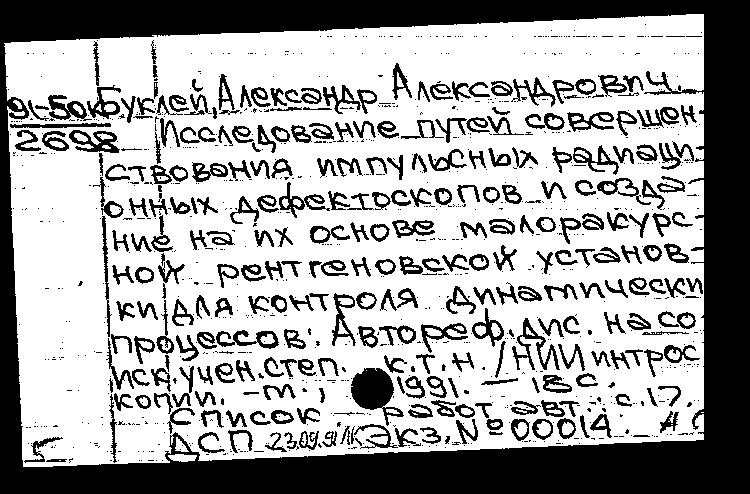 91-50к Буклей, Александр Александрович.
2698 Исследование путей совершен-
ствования импульсных радиаци-
онных дефектоскопов и созда-
ние на их основе малоракурс-
ной рентгеновской установ-
ки для контроля динамически
процессов: Автореф. дис. на со
иск. учен. степ. к.т.н. / НИИ интрос
копии. - М., 1991. - 18 с.
Список работ авт.: с. 17.
ДСП 23.09.91 Экз. № 00014.